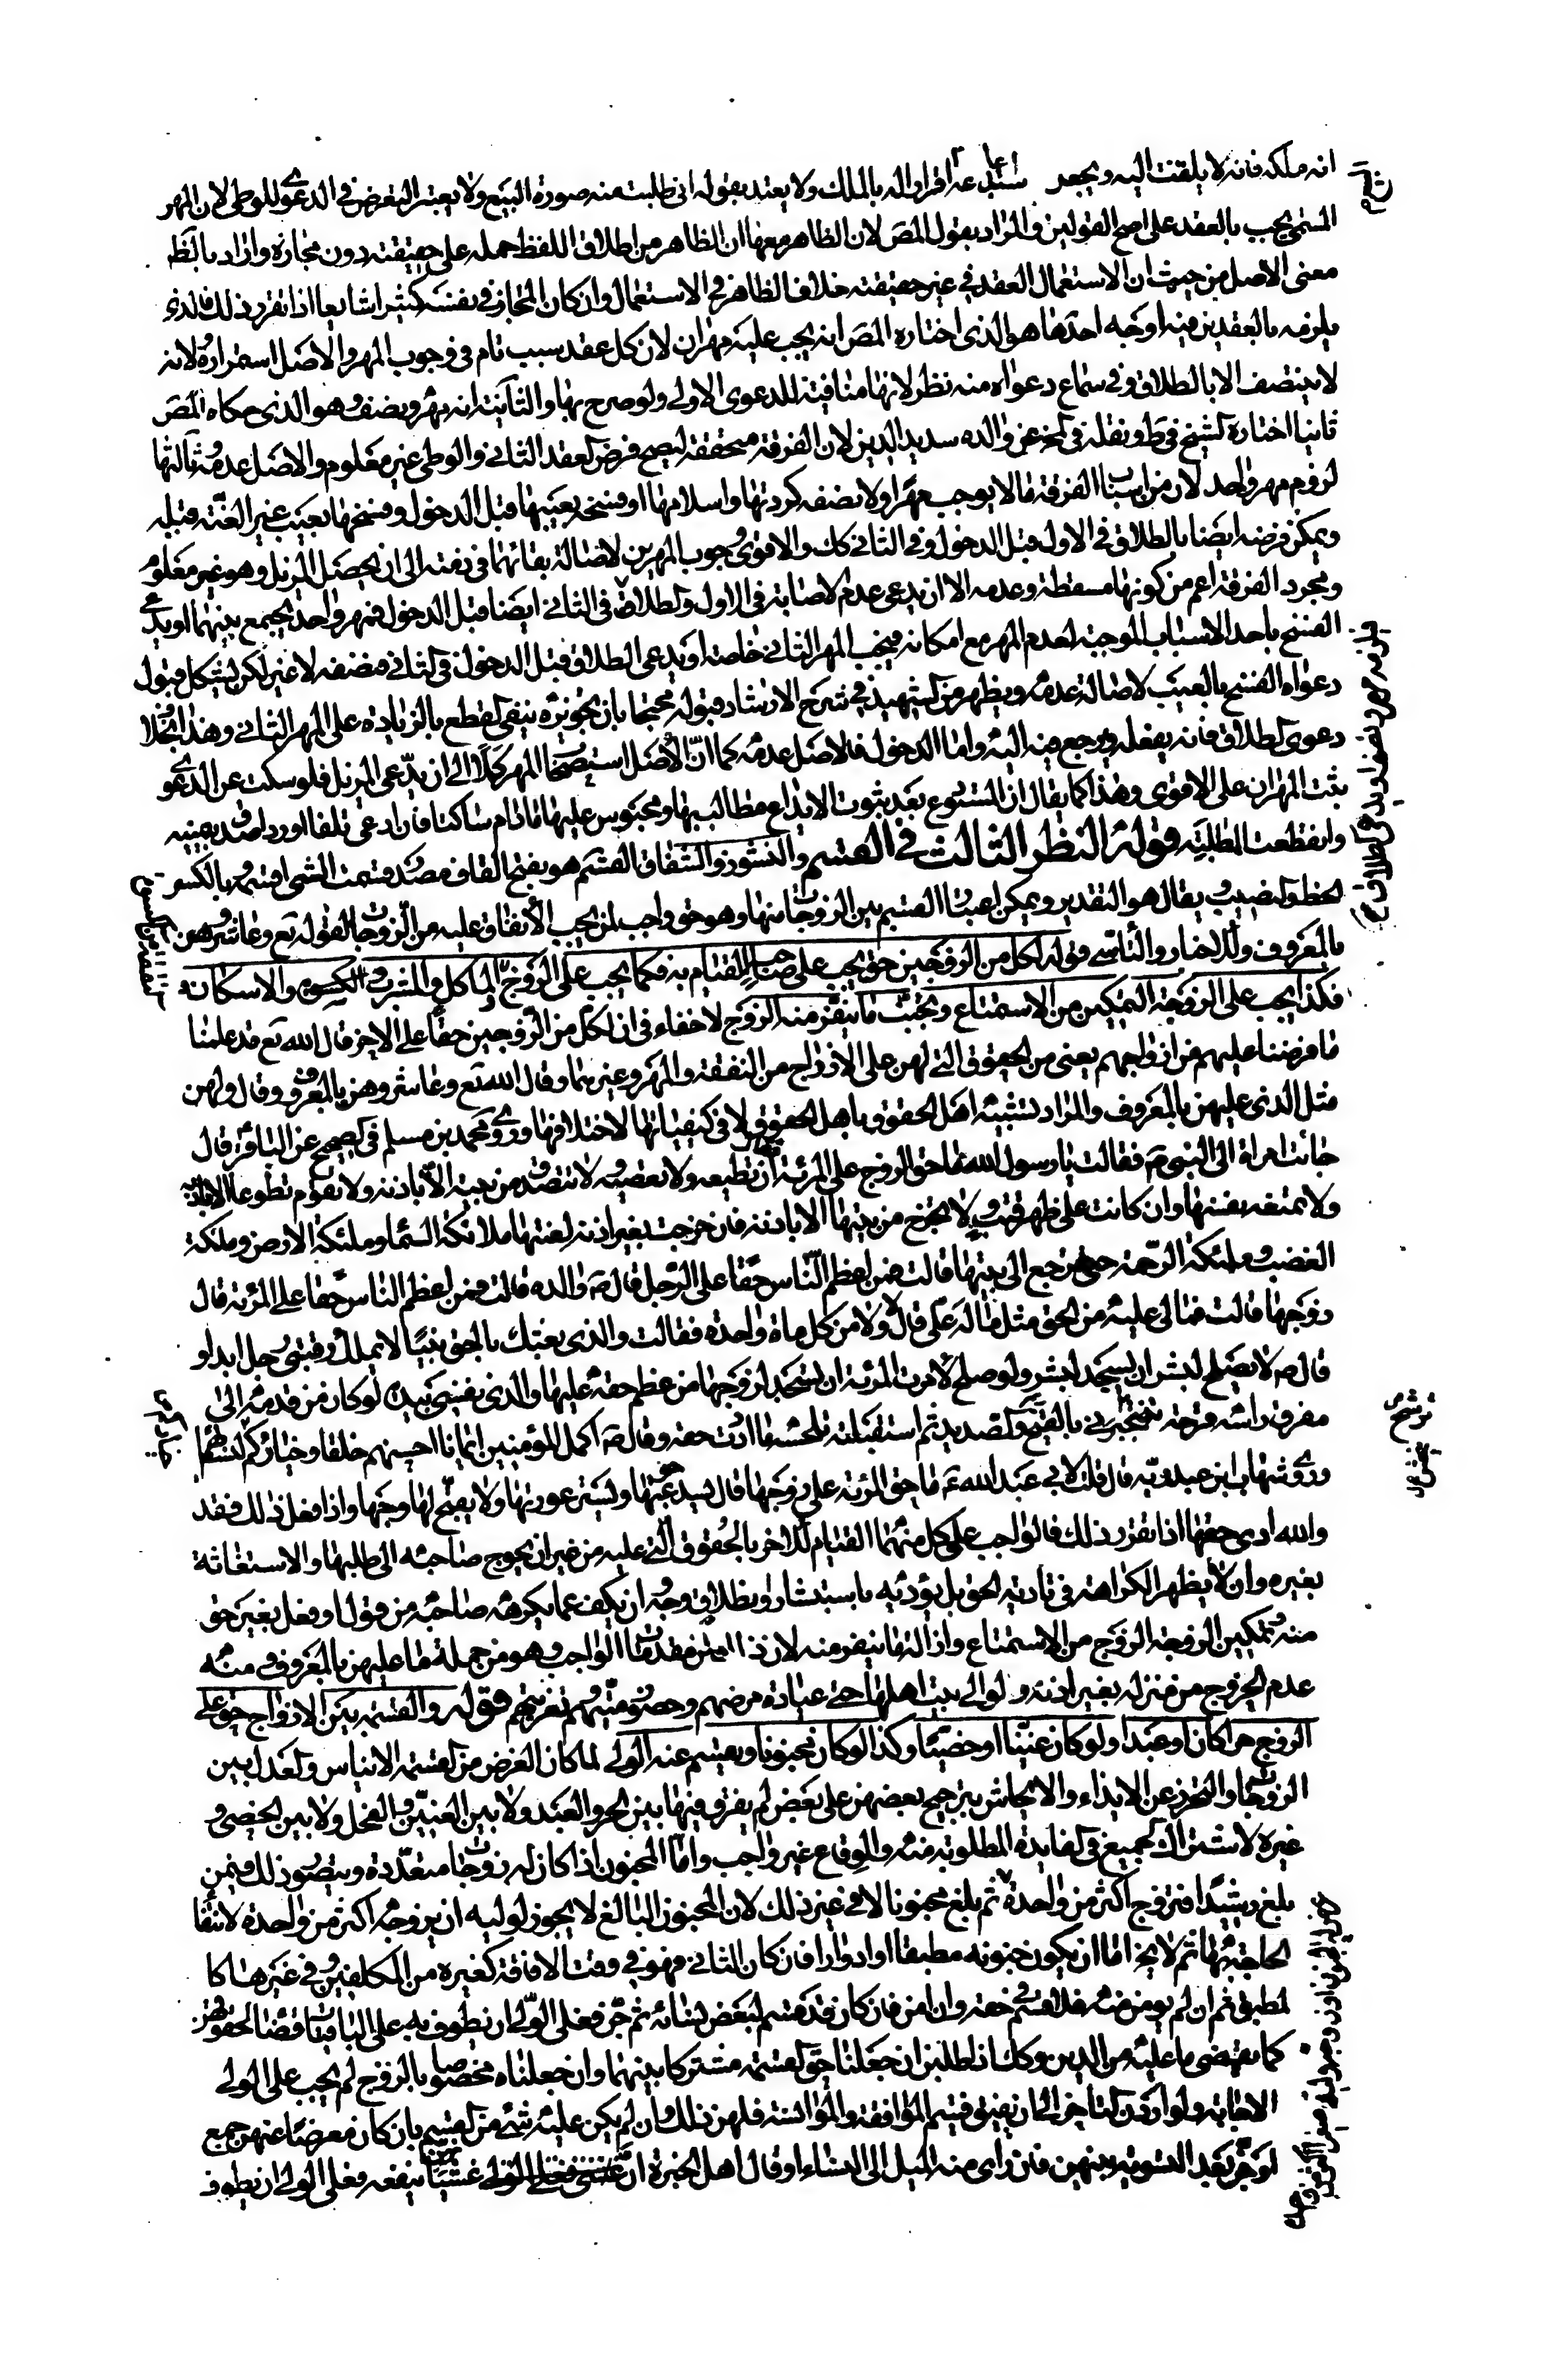 انه ملكه فانه لا يلتفت اليه ويجعل استدعاءه اقرارا له بالملك ولا يعتد بقوله اني طلبت منه صورة البيع ولا يعتبر التعرض في الدعوى للوطى لان المهر
المسمى يجب بالعقد على اصح القولين والمراد بقول المص لان الظاهر معها ان الظاهر من اطلاق اللفظ حمله على حقيقته دون مجازه واراد بالظ
معنى الاصل من حيث ان الاستعمال العقد في غير حقيقته خلاف الظاهر في الاستعمال وان كان المجاز في نفسه كثيرا شايعا اذا تقرر ذلك فالذي
يلزمه بالعقدين فيه اوجه احدها هو الذي اختاره المص انه يجب عليه مهران لان كل عقد سبب تام في وجوب المهر والاصل استمراره لانه
لا ينتصف الا بالطلاق وفي سماع دعواه منه نظر لانها منافية للدعوى الاولى ولو صرح بها والثانية انه مهر ونصف وهو الذي حكاه المص
ثانيا اختاره الشيخ في ط ونقله في عن والده سديد الدين لان الفرقة متحققة ليصح فرض العقد الثاني والوطى غير معلوم والاصل عدمه ثالثها
لزوم مهر واحد لان من اسباب الفرقة ما لا يوجب مهرا ولا نصفه كردتها واسلامها او فسخه بعيبها قبل الدخول وفسخها بعيب غير العنة قبله
ويمكن فرضه ايضا بالطلاق في الاول قبل الدخول وفي الثاني كك والاقوى وجوب المهرين لاصالة بقائهما في ذمته الى ان يحصل المزيل وهو غير معلوم
ومجرد الفرقة اعم من كونها مسقطة وعدمه الا ان يدعى عدم الاصابة في الاول والطلاق في الثاني ايضا قبل الدخول فمهر واحد يجمع بينهما او يدعى
الفسخ باحد الاسباب الموجبة لعدم المهر مع امكانه فيجب المهر الثاني خاصة او يدعى الطلاق قبل الدخول في الثاني فنصفه لا غير لكن يشكل قبول
دعواه الفسخ بالعيب لاصالة عدمه ويظهر من الشهيد في شرح الارشاد قبوله محتجا بان تجويزه ينفي القطع بالزيادة على المهر الثاني وهذا بخلاف
دعوى الطلاق فانه بفعله يرجع فيه اليه واما الدخول فالاصل عدمه كما ان الاصل استصحاب المهر كملا الى ان يدعى المزيل فلو سكت عن الدعوى
ثبت المهران على الاقوى وهذا كما يقال ان المستودع بعد ثبوت الايداع مطالب بها ومحبوس عليها ما دام ساكتا فان ادعى تلفا او ردا صدق بيمينه
وانقطعت الطلبة قوله النظر الثالث في القسم والنشوز والشقاق القسم هو بفتح القاف مصدر قسمت الشئ اقسمه وبالكسر
الحظ والنصيب يقال هو التقدير ويمكن اعتبار القسم بين الزوجات منها وهو حق واجب لمن يجب الانفاق عليه من الزوجات لقوله تع وعاشروهن
بالمعروف وللاخبار والتاسي قوله لكل من الزوجين حق يجب على صاحبه القيام به فكما يجب على الزوج الماكل والمشرب والكسوة والاسكان
فكذا يجب على الزوجة التمكين من الاستمتاع وتجنب ما يتنفر منه الزوج لا خفاء في ان لكل من الزوجين حقا على الاخر قال الله تع قد علمنا
ما فرضنا عليهم في ازواجهم يعني من الحقوق التي لهن على الازواج من النفقة والمهر وغيرهما وقال الله تع وعاشروهن بالمعروف وقال ولهن
مثل الذي عليهن بالمعروف والمراد تشبيه اصل الحقوق باصل الحقوق لا في كيفياتها لاختلافها وروى محمد بن مسلم في الصحيح عن الباقر قال
جاءت امراة الى النبي ص فقالت يا رسول الله ما حق الزوج على المرئة قال ان تطيعه ولا تعصيه ولا تتصدق من بيته الا باذنه ولا تصوم تطوعا الا باذنه
ولا تمنعه نفسها وان كانت على ظهر قتب ولا تخرج من بيتها الا باذنه فان خرجت بغير اذنه لعنتها ملائكة السماء وملئكة الارض وملئكة
الغضب وملئكة الرحمة حتى ترجع الى بيتها قالت فمن اعظم الناس حقا على الرجل قال ص والده قالت فمن اعظم الناس حقا على المرئة قال
زوجها قالت فما لي عليه من الحق مثل ما له علي قال لا ولا من كل ماة واحدة فقالت والذي بعثك بالحق نبيا لا يملك رقبتي رجل ابدا
قال ص لا يصلح لبشر ان يسجد لبشر ولو صلح لامرت المرئة ان تسجد لزوجها من عظم حقه عليها والذي نفسي بيده لو كان من قدمه الى
مفرق راسه قرحة تنبجس بالقيح والصديد ثم استقبلته تلحسه ما ادت حقه وقال ص اكمل المؤمنين ايمانا احسنهم خلقا وخياركم لنسائهم
وروى شهاب بن عبد ربه قال قلت لابي عبد الله ع ما حق المرئة على زوجها قال يسد جوعتها ويستر عورتها ولا يقبح لها وجها واذا فعل ذلك فقد
والله ادى حقها اذا تقرر ذلك فالواجب على كل منهما القيام للاخر بالحقوق التي عليه من غير ان يحوج صاحبه الى طلبها والاستغاثة
بغيره وان لا يظهر الكراهة في تادية الحق بل يؤديه باستبشار وبطلاق وجه وان يكف عما يكرهه صاحبه من قول او فعل بغير حق
منه تمكين الزوجة الزوج من الاستمتاع وازالة ما ينفر منه لان ذا من مقدمات الواجب وهو من جملة ما عليهن بالمعروف ومنه
عدم الخروج من منزله بغير اذنه ولو الى بيت اهلها حتى عيادة مرضهم وحضور ميتهم وتعزيتهم قوله والقسمة بين الازواج حق على
الزوج حرا كان او عبدا ولو كان عنينا او خصيا وكذا لو كان مجنونا ويقسم عنه الولي لما كان الغرض من القسمة الايناس والعدل بين
الزوجات والتحرز عن الايذاء والايحاش بترجيح بعضهن على بعض لم يفرق فيها بين الحر والعبد ولا بين العنين والفحل ولا بين الخصي و
غيره لاشتراك الجميع في الفايدة المطلوبة منه والوقاع غير واجب واما المجنون اذا كان له زوجات متعددة ويتصور ذلك فيمن
بلغ رشيدا فتزوج اكثر من واحدة ثم بلغ مجنونا لا في غير ذلك لان المجنون البالغ لا يجوز لوليه ان يزوجه اكثر من واحدة لانتفاء
الحاجة بها ثم لا يخ اما ان يكون جنونه مطبقا او ادوارا فان كان الثاني فهو في وقت الافاقة كغيره من المكلفين وفي غيرها كا
لمطبق ثم ان لم يومن منه فلا قسم في حقه وان امن فان كان قد قسم لبعض نسائه ثم جن فعلى الولي ان يطوف به على الباقيات قضاء لحقوقهن
كما يقضى ما عليه من الدين وكك اذا طلبن ان جعلنا حق القسمة مشتركا بينهما وان جعلناه مخصوصا بالزوج لم يجب على الولي
الاجابة ولو اردن التاخير الى ان يفيق فيتم الموافقة والمؤانسة فلهن ذلك وان لم يكن عليه شئ من القسم بان كان معرضا عنهن جمع
او جن بعد التسوية بينهن فان راى منه الميل الى النساء او قال اهل الخبرة ان غشيانهن ينفعه فعلى الولي ان يطوف